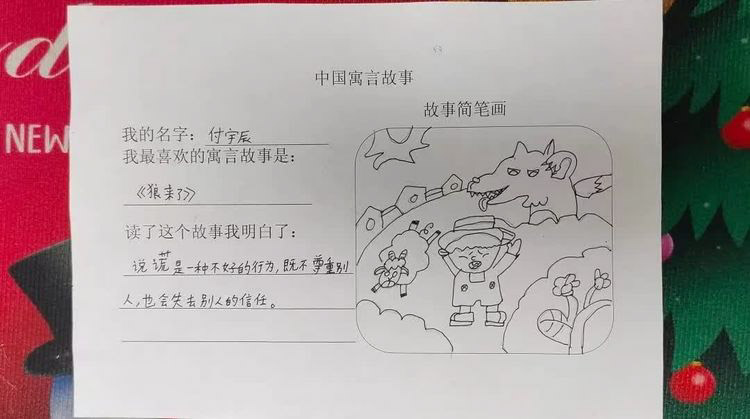 NEW
中国寓言故事
故事简笔画
我的名字：付宇辰
我最喜欢的寓言故事是：
《狼来了》
读了这个故事我明白了：
说谎是一种不好的行为，既不尊重别
人，也会失去别人的信任。